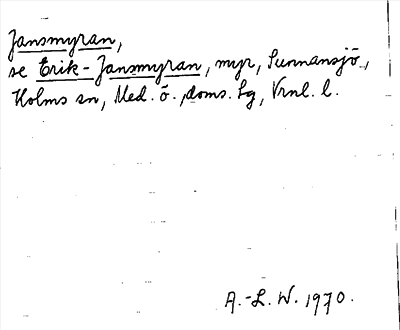 Jansmyran,
se Erik-Jansmyran, myr, Sunnansjö,
Holms sn, Med. ö. doms. sg, Vrnl. l.
A.-L. W. 1970.